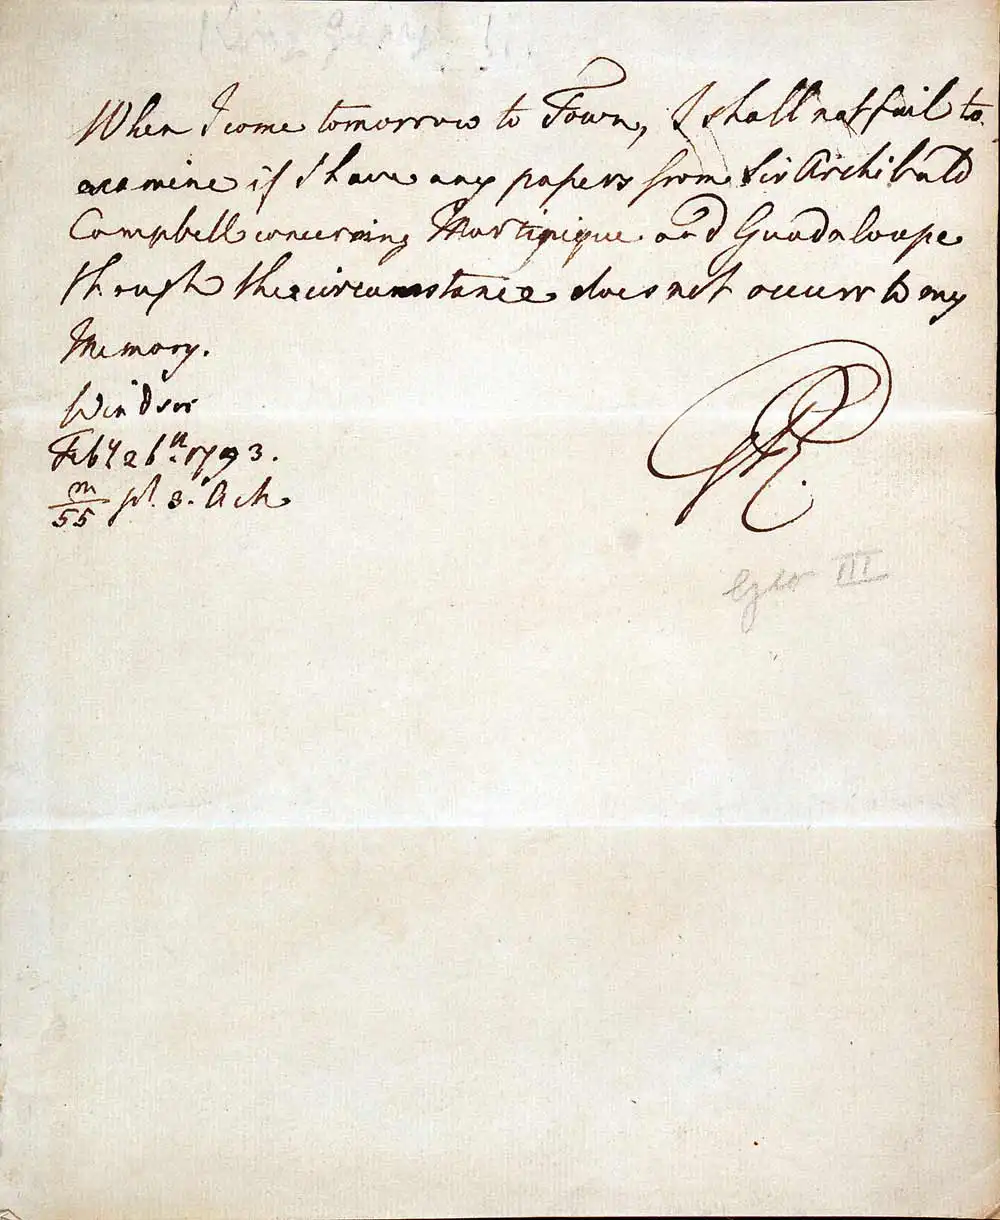 King George III
When I come tomorrow to Town, I shall not fail to
examine if I have any papers from Sir Archibald
Campbell concerning Martinique and Guadaloupe
though the circumstance does not occurr to my
Memory.
Windsor
Feby 26th 1793.
m/55 pt. 3. A.M.
GR.
Geo III